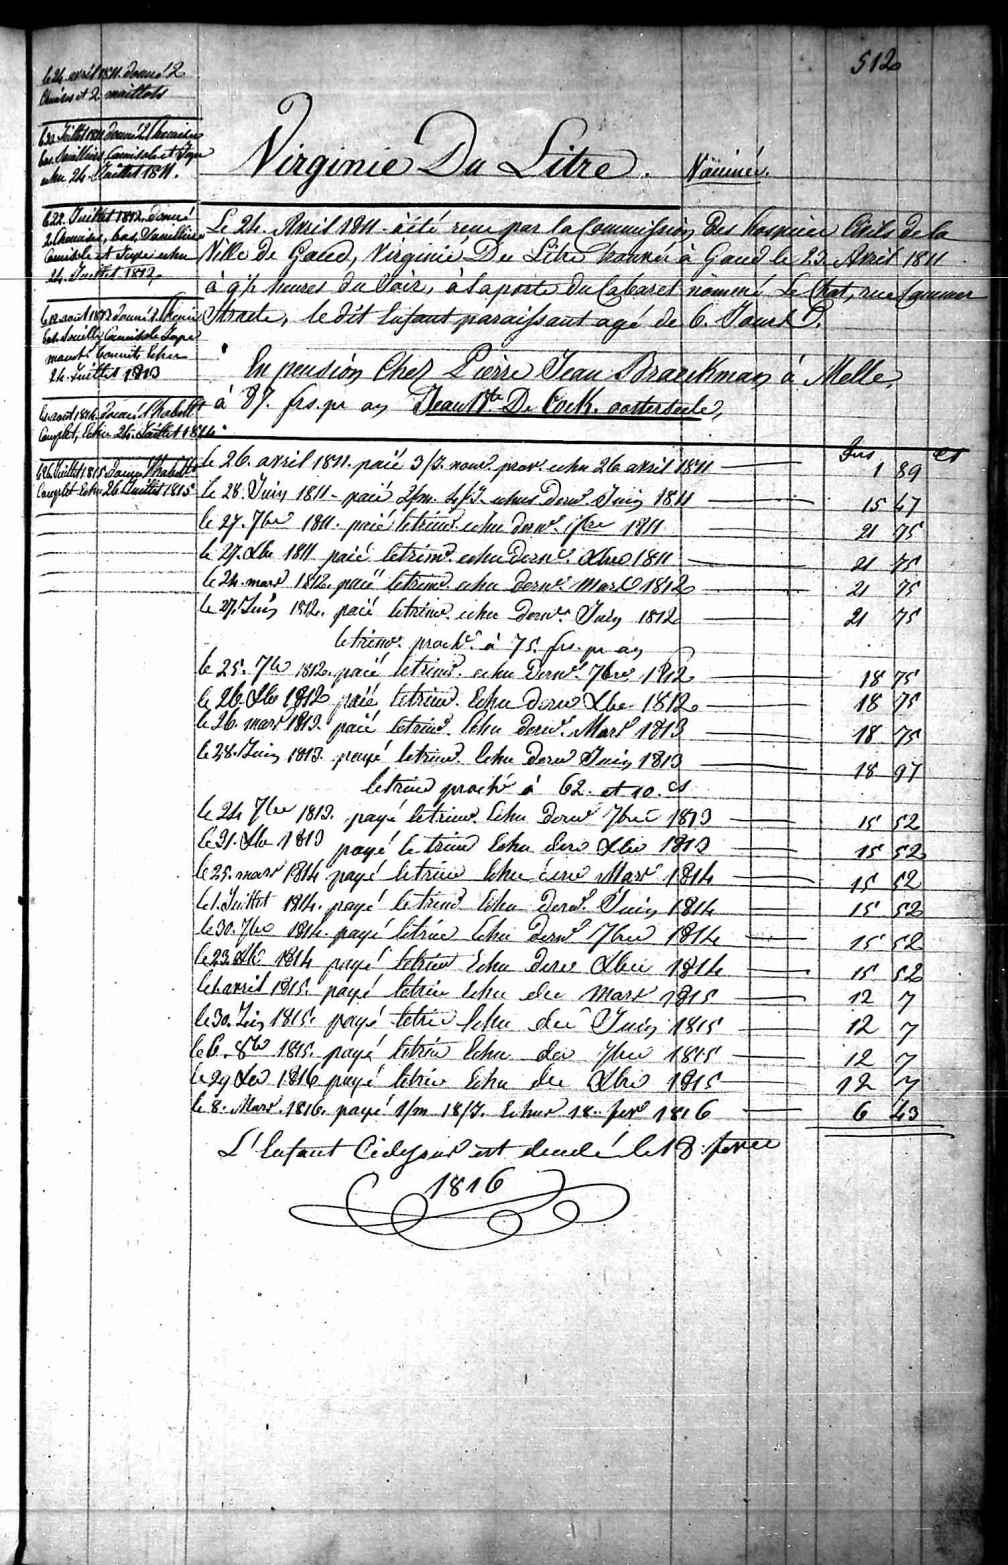 512
le 24 avril 1811. donné 2
Chemises et 2 maillots
le 22 Juillet 1811 donné 2 Chemises
bas, Souilliers, Camisole et Jupe
echu 24 Juillet 1811.
le 22. Juillet 1812. donné
2 Chemises, bas, Souilliers
Camisole et Jupe echu
24. Juillet 1812,
le août 1813 donné 2 Chemis
bas Souilliers Camisole Jupe
Echu
24. Juillet 1813
août 1814. donné
Complet, Echu 24. Juillet 1814.
le 26 Juillet 1815. donné
Complet Echu 26 Juillet 1815
Virginie Du Litre. Nominé.
Le 24. Avril 1811. a été reçue par la Commission des hospices Civils de la
Ville de Gand, Virginie Du Litre trouvée à Gand le 23. Avril 1811
à 9½ heures du Soir, à la porte du Cabaret nomené Le Chat, rue
Straete, le dit Enfant paraissant agé de 6. Jours.
En pension Chez Pierre Jean Braeckman à Melle,
à 87. frs. pr an Jean Bte De Cock. oosterseele,
frs cs
le 26. avril 1811. paié 3/J. nour. prov. echu 26 avril 1811 1 89
le 28. Juin 1811 - paié 2/m. 4/J. echus dernr. Juin 1811 15 47
le 27. 7bre 1811. paié le trimr. echu dernr. 7bre 1811 21 75
le 27. Xbre 1811 paié le trimr. echu dernr. Xbre 1811 21 75
le 24. mars 1812. paié le trimr. echu dernr. Mars 1812 21 75
le 27. Juin 1812. paié le trimr. echu dernr. Juin 1812 21 75
le trimr. proche. à 75. frs. pr an
le 25. 7bre 1812. paié le trimr. echu dernr. 7bre 1812 18 75
le 26. Xbre 1812 paié le trimr. Echu dernr Xbre 1812 18 75
le 26. mars 1813. paié le trimr. Echu dernr. Mars 1813 18 75
le 28. Juin 1813. payé le trimr. Echu dernr Juin 1813 18 97
le trimr proche à 62. et 10. cs
le 24 7bre 1813. payé le trimr. Echu dernr 7bre 1813 15 52
le 31. Xbre 1813 payé le trimr Echu dern Xbre 1813 15 52
le 25. mars 1814 payé le trimr Echu dernr Mars 1814 15 52
le 1. Juillet 1814. payé le trimr Echu dernr. Juin 1814 15 52
le 30. 7bre 1814. payé le trimr Echu dernr 7bre 1814 15 52
le 23. Xbre 1814 payé le trimr Echu dernr Xbre 1814 15 52
le 1. avril 1815. payé le trim Echu der Mars 1815 12 7
le 30. Juin 1815. payé le trim Echu der Juin 1815 12 7
le 6. 8bre 1815. payé le trim Echu der 7bre 1815 12 7
le 29 1816 payé le trim Echu der Xbre 1815 12 7
le 8. Mars. 1816. payé 1/m 18/J. Echus 18. fevr 1816 6 43
L'Enfant Cidessus est decedé le 18. fevrier
1816